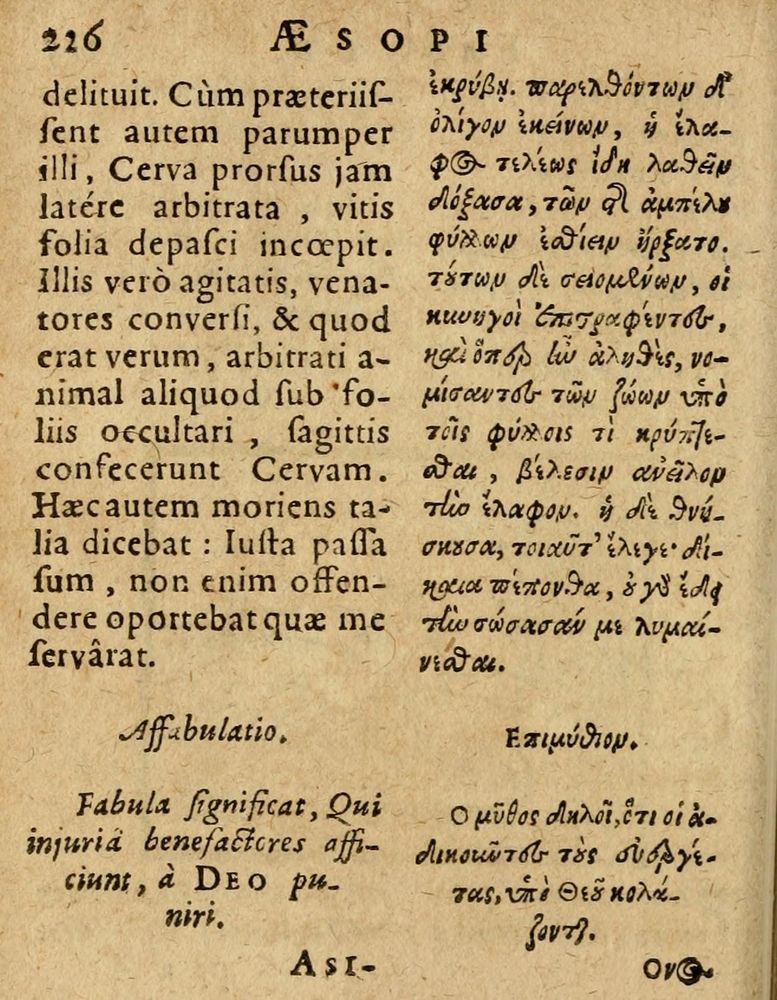 226 ÆSOPI
delituit. Cùm præteriiſ-
ſent autem parumper
illi, Cerva prorſus jam
latére arbitrata, vitis
folia depaſci incœpit.
Illis verò agitatis, vena-
tores converſi, & quod
erat verum, arbitrati a-
nimal aliquod ſub fo-
liis occultari, ſagittis
confecerunt Cervam.
Hæc autem moriens ta-
lia dicebat: Iuſta paſſa
ſum, non enim offen-
dere oportebat quæ me
ſervârat.
Affabulatio.
Fabula ſignificat, Qui
injuriâ benefactores affi-
ciunt, à DEO pu-
niri.
ASI-
ἐκρύβη. παρελθόντων δὲ
ὀλίγον ἐκείνων, ἡ ἔλα-
φος τελέως ἤδη λαθεῖν
δόξασα, τῶν τῆς ἀμπέλου
φύλλων ἐσθίειν ἤρξατο.
τούτων δὲ σειομένων, οἱ
κυνηγοὶ ἐπιστραφέντες,
καὶ ὅπερ ἦν ἀληθὲς, νο-
μίσαντες τῶν ζώων ὑπὸ
τοῖς φύλλοις τὶ κρύπτε-
σθαι, βέλεσιν ἀνεῖλον
τὴν ἔλαφον. ἡ δὲ θνή-
σκουσα, τοιαῦτ' ἔλεγε· δί-
καια πέπονθα, οὐ γὰρ ἔδει
τὴν σώσασάν με λυμαί-
νεσθαι.
Επιμύθιον.
Ο μῦθος δηλοῖ, ὅτι οἱ ἀ-
δικοῦντες τοὺς εὐεργέ-
τας, ὑπὸ Θεοῦ κολά-
ζονται.
Ονος